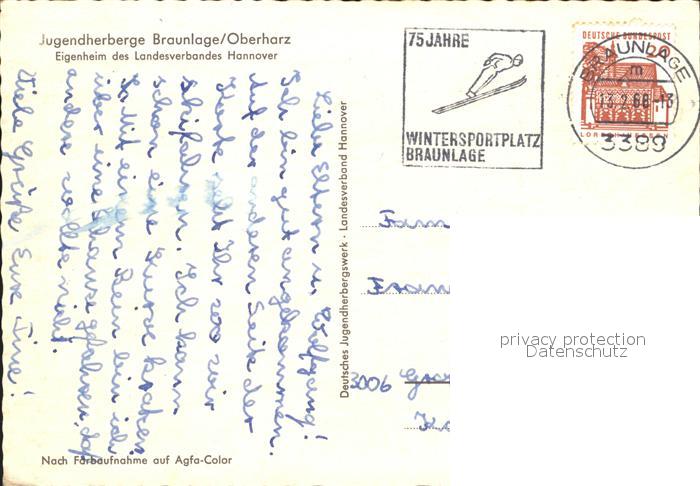 Jugendherberge Braunlage/Oberharz
Eigenheim des Landesverbandes Hannover
75 JAHRE
WINTERSPORTPLATZ
BRAUNLAGE
DEUTSCHE BUNDESPOST
20
BRAUNLAGE
m
13.2.68-13
3389
Liebe Eltern u. Wolfgang!
Ich bin gut angekommen.
Auf der anderen Seite der
Karte seht Ihr wo wir
schifahren. Ich kann
schon eine Kurve kratzen
So mit einem Bein bin ich
über eine Schanze gefahren, das
andere wollte nicht.
Viele Grüße Eure Tine!
Deutsches Jugendherbergswerk · Landesverband Hannover
Fam
3006
privacy protection
Datenschutz
Nach Farbaufnahme auf Agfa-Color